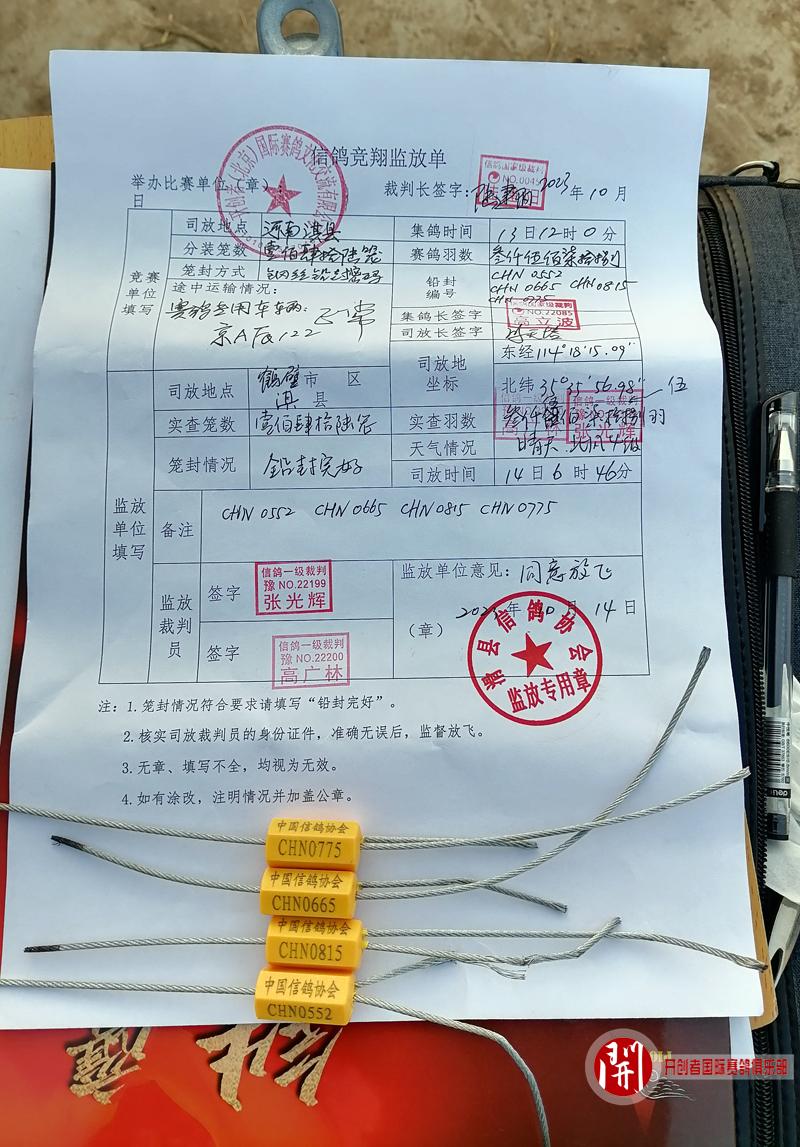 信鸽竞翔监放单
开创者（北京）国际赛鸽文化交流有限公司
信鸽国家级裁判
举办比赛单位（章）：
裁判长签字：
2023年10月
日
竞赛单位填写
司放地点 河南淇县 集鸽时间 13日12时0分
分装笼数 壹佰肆拾陆笼 赛鸽羽数 叁仟伍佰柒拾捌羽
笼封方式 钢丝铅封密码 铅封编号 CHN 0552
CHN 0665 CHN 0815
CHN 0775
途中运输情况：
赛鸽专用车车辆：正常
京AFQ122
集鸽长签字
NO.22085
高立波
司放长签字
监放单位填写
司放地点 鹤壁市 区
淇县
司放地坐标 东经114°18′15.09″
北纬35°35′56.98″
伍
实查笼数 壹佰肆拾陆笼 实查羽数 叁仟伍佰柒拾捌羽
张光辉
笼封情况 铅封完好 天气情况 晴天 北风4级
司放时间 14日6时46分
备注 CHN 0552 CHN 0665 CHN 0815 CHN 0775
监放裁判员
签字
信鸽一级裁判
豫 NO.22199
张光辉
签字
信鸽一级裁判
豫 NO.22200
高广林
监放单位意见：同意放飞
2023年10月14日
（章）
淇县信鸽协会
监放专用章
注：1.笼封情况符合要求请填写“铅封完好”。
2.核实司放裁判员的身份证件，准确无误后，监督放飞。
3.无章、填写不全，均视为无效。
4.如有涂改，注明情况并加盖公章。
中国信鸽协会
CHN0775
中国信鸽协会
CHN0665
中国信鸽协会
CHN0815
中国信鸽协会
CHN0552
deli
開
开创者国际赛鸽俱乐部